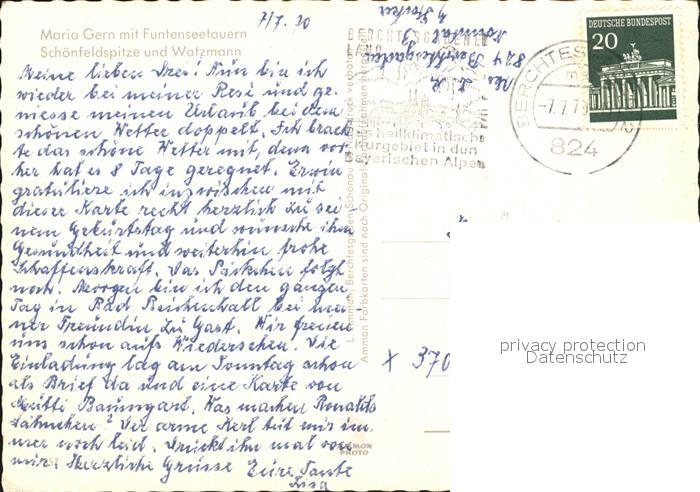 7/7. 70
Maria Gern mit Funtenseetauern
Schönfeldspitze und Watzmann
Meine lieben Drei! Nun bin ich
wieder bei meiner Resi und ge-
niesse meinen Urlaub bei dem
schönen Wetter doppelt. Ich brach-
te das schöne Wetter mit, denn vor-
her hat es 8 Tage geregnet. Erwin
gratuliere ich inzwischen mit
dieser Karte recht herzlich zu sei-
nem Geburtstag und wünsche ihm
Gesundheit und weiterhin frohe
Schaffenskraft. Das Päckchen folgt
noch. Morgen bin ich den ganzen
Tag in Bad Reichenhall bei mei-
ner Freundin zu Gast. Wir freuen
uns schon aufs Wiedersehen. Die
Einladung lag am Sonntag schon
als Brief da und eine Karte von
Mutti Baumgart. Was machen Ronalds
Zähnchen? Der arme Kerl tut mir im-
mer noch leid. Drückt ihn mal von
mir. Herzliche Grüsse Eure Tante
Lisa
824 Berchtesgaden
BERCHTESGADENER
LAND
heilklimatische
Kurgebiet in den
Bayerischen Alpen
BERCHTESGADEN
-7.7.70
824
DEUTSCHE BUNDESPOST
20
AMMON
PHOTO
X 370
privacy protection
Datenschutz